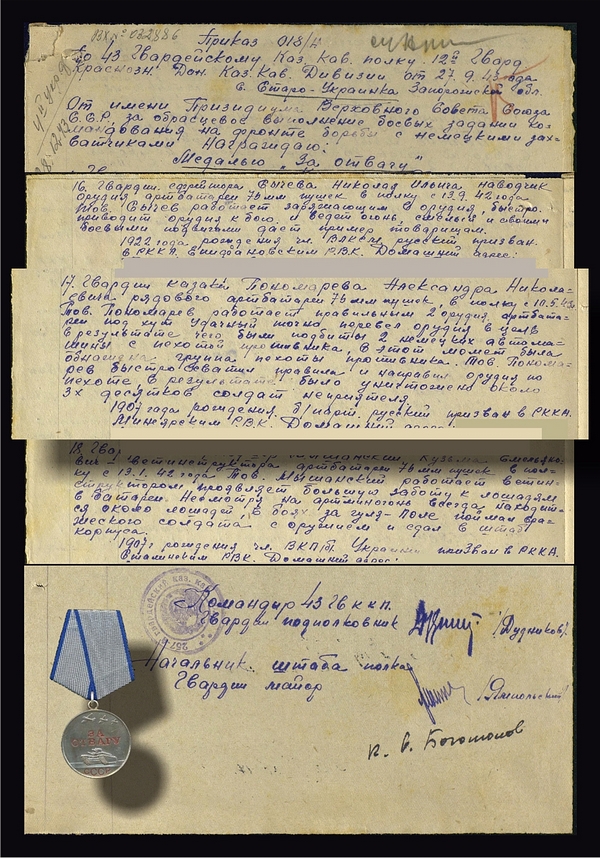 Вх№ 032886
Приказ 018/н
По 43 Гвардейскому Каз. Кав. полку. 12й Гвард.
Краснозн. Дон. Каз. Кав. Дивизии от 27.9.43 года
с. Старо-Украинка Запорожской обл.
От имени Призидиума Верховного Совета Союза
С.С.Р. за образцевое выполнение боевых заданий ко-
мандования на фронте борьбы с немецкими зах-
ватчиками Награждаю:
Медалью „За отвагу"
16. Гвардии ефрейтора, Сычева Николая Ильича наводчик
орудия артбатареи 76 мм пушек в полку с 13.9.42 года
Тов. Сычев работает заряжающим орудия, быстро
приводит орудия к бою. Ведет огонь, смелый и своими
боевыми подвигами дает пример товарищам.
1922 года рождения чл. ВЛКСМ русский призван
в РККА. РВК. Домашний адрес:
17. Гвардии казака Пономарева Александра Никола-
евича рядового артбатареи 76 мм пушек, в полку с 10.5.43г
Тов. Пономарев работает правильным 2 орудия артбата-
реи под хут. Удачный точно перевел орудия в цель
в результате чего были подбиты 2 немецких автома-
шины с пехотой противника, в этот момент была
обнаружена группа пехоты противника. Тов. Понома-
рев быстро схватил правила и направил орудия по
пехоте, в результате было уничтожено около
3х десятков солдат неприятеля
1907 года рождения. б/парт. русский призван в РККА.
Миньярским РВК. Домашний адрес:
18. Гвар
вич - Ветинструктора артбатареи 76 мм пушек в пол-
ку с 13.1.42 года Тов. Мышанский работает ветин-
структором, проявляет большую заботу к лошадям
в батареи. Несмотря на артминогонь всегда находит-
ся около лошадей. В боях за Гуля-Поле поймал вра-
жеского солдата с оружием и сдал в штаб
корпуса.
1907г рождения чл. ВКП/б/. Украинц призван в РККА.
Сталинским РВК. Домашний адрес:
Командир 43 Гв ккп
Гвардии подполковник /Дудников/.
Начальник штаба полка
Гвардии майор /Ямпольский/
ЗА
ОТВАГУ
СССР